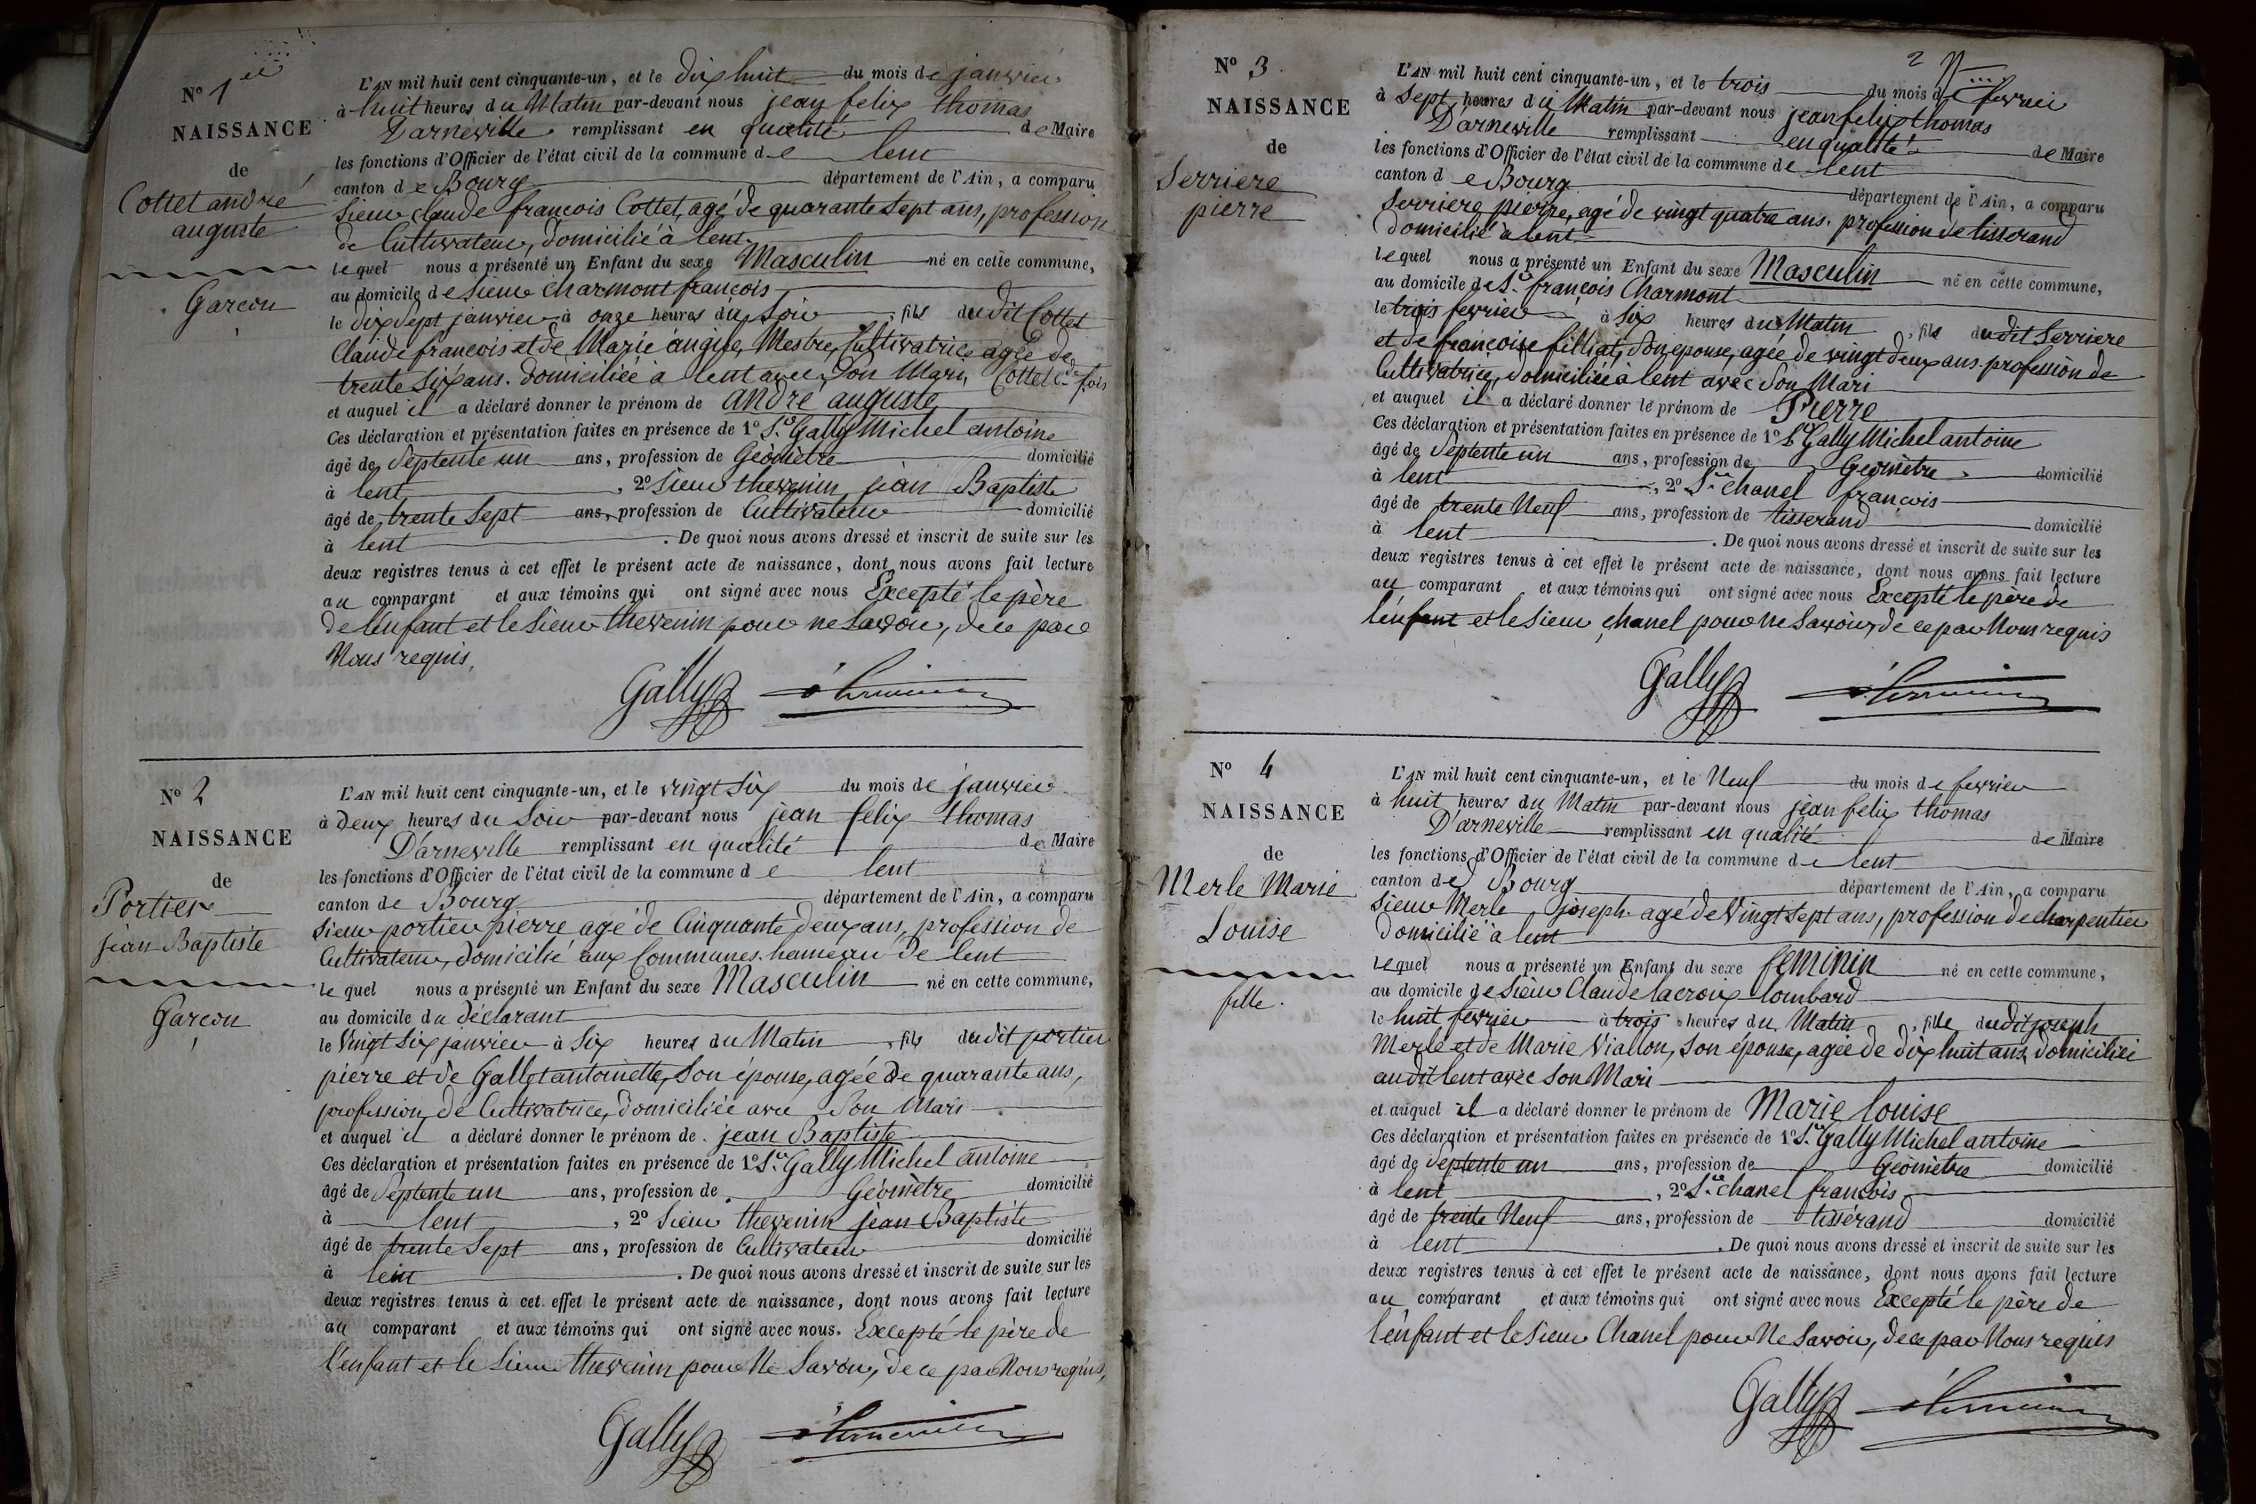 No 1er
NAISSANCE
de
Cottet andré
auguste
Garçon
L'AN mil huit cent cinquante-un, et le dix huit du mois de janvier
à huit heures du Matin par-devant nous jean felix thomas
D'arneville remplissant en qualité de Maire
les fonctions d'Officier de l'état civil de la commune de lent
canton de Bourg département de l'Ain, a comparu
Sieur claude françois Cottet, agé de quarante Sept ans, profession
de Cultivateur, domicilié à lent
lequel nous a présenté un Enfant du sexe Masculin né en cette commune,
au domicile de Sieur Charmont françois
le dix Sept janvier à onze heures du Soir, fils du dit Cottet
Claude françois et de Marie Mestre, Cultivatrice agée de
trente Six ans. domiciliée à lent avec Son Mari, Cottet Cde fois
et auquel il a déclaré donner le prénom de andré auguste
Ces déclaration et présentation faites en présence de 1º Sr. Gally Michel antoine
âgé de Septente un ans, profession de Géomètre domicilié
à lent, 2º Sieur thevenin jean Baptiste
âgé de trente Sept ans, profession de Cultivateur domicilié
à lent. De quoi nous avons dressé et inscrit de suite sur les
deux registres tenus à cet effet le présent acte de naissance, dont nous avons fait lecture
au comparant et aux témoins qui ont signé avec nous Excepté le père
de l'enfant et le Sieur thevenin pour ne Savoir, de ce par
Nous requis.
Gally
No 2
NAISSANCE
de
Portier
jean Baptiste
Garçon
L'AN mil huit cent cinquante-un, et le vingt Six du mois de janvier
à deux heures du Soir par-devant nous jean felix thomas
D'arneville remplissant en qualité de Maire
les fonctions d'Officier de l'état civil de la commune de lent
canton de Bourg département de l'Ain, a comparu
Sieur portier pierre agé de Cinquante deux ans, profession de
Cultivateur, domicilié aux Communes hameau de lent
le quel nous a présenté un Enfant du sexe Masculin né en cette commune,
au domicile du déclarant
le Vingt Six janvier à Six heures du Matin, fils du dit portier
pierre et de Gallet antoinette, Son épouse, agée de quarante ans,
profession de Cultivatrice, domiciliée avec Son Mari
et auquel il a déclaré donner le prénom de jean Baptiste
Ces déclaration et présentation faites en présence de 1º Sr. Gally Michel antoine
âgé de Septente un ans, profession de Géomètre domicilié
à lent, 2º Sieur thevenin jean Baptiste
âgé de trente Sept ans, profession de Cultivateur domicilié
à lent. De quoi nous avons dressé et inscrit de suite sur les
deux registres tenus à cet effet le présent acte de naissance, dont nous avons fait lecture
au comparant et aux témoins qui ont signé avec nous. Excepté le père de
l'enfant et le Sieur thevenin pour Ne Savoir, de ce par Nous requis,
Gally
2
No 3
NAISSANCE
de
Serriere
pierre
L'AN mil huit cent cinquante-un, et le trois du mois de fevrier
à Sept heures du Matin par-devant nous jean felix thomas
D'arneville remplissant en qualité de Maire
les fonctions d'Officier de l'état civil de la commune de lent
canton de Bourg département de l'Ain, a comparu
Serriere pierre, agé de vingt quatre ans. profession de tisserand
domicilié à lent
lequel nous a présenté un Enfant du sexe Masculin né en cette commune,
au domicile de Sr. françois Charmont
le trois fevrier à Six heures du Matin, fils du dit Serriere
et de françoise filliat, Son epouse, agée de vingt deux ans. profession de
Cultivatrice, domiciliée à lent avec Son Mari
et auquel il a déclaré donner le prénom de Pierre
Ces déclaration et présentation faites en présence de 1º Sr Gally Michel antoine
âgé de Septente un ans, profession de Géomètre domicilié
à lent, 2º Sr. chanel françois
âgé de trente Neuf ans, profession de tisserand domicilié
à lent. De quoi nous avons dressé et inscrit de suite sur les
deux registres tenus à cet effet le présent acte de naissance, dont nous avons fait lecture
au comparant et aux témoins qui ont signé avec nous Excepté le père de
l'enfant et le Sieur chanel pour Ne Savoir, de ce par Nous requis
Gally
No 4
NAISSANCE
de
Merle Marie
Louise
fille.
L'AN mil huit cent cinquante-un, et le Neuf du mois de fevrier
à huit heures du Matin par-devant nous jean felix thomas
D'arneville remplissant en qualité de Maire
les fonctions d'Officier de l'état civil de la commune de lent
canton de Bourg département de l'Ain, a comparu
Sieur Merle joseph agé de Vingt Sept ans, profession de charpentier
domicilié à lent
lequel nous a présenté un Enfant du sexe feminin né en cette commune,
au domicile de Sieur Claude lacroix lombard
le huit fevrier à trois heures du Matin, fille du dit joseph
Merle et de Marie Viallon, Son épouse, agée de dix huit ans, domiciliée
au dit lent avec Son Mari
et auquel il a déclaré donner le prénom de Marie louise
Ces déclaration et présentation faites en présence de 1º Sr. Gally Michel antoine
âgé de Septente un ans, profession de Géomètre domicilié
à lent, 2º Sr. chanel françois
âgé de trente Neuf ans, profession de tisserand domicilié
à lent. De quoi nous avons dressé et inscrit de suite sur les
deux registres tenus à cet effet le présent acte de naissance, dont nous avons fait lecture
au comparant et aux témoins qui ont signé avec nous Excepté le père de
l'enfant et le Sieur Chanel pour Ne Savoir, de ce par Nous requis
Gally